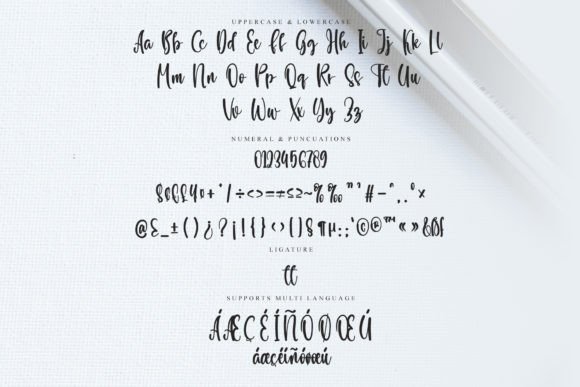 UPPERCASE & LOWERCASE
Aa Bb Cc Dd Ee Ff Gg Hh Ii Jj Kk Ll
Mm Nn Oo Pp Qq Rr Ss Tt Uu
Vv Ww Xx Yy Zz
NUMERAL & PUNCUATIONS
0123456789
$¢€£¥¤+*/÷<>=≠≤≥~%‰"'#-^,.°×
@&_±()¿?¡!{}‹›[]§¶µ:;'©®™«»
LIGATURE
tt
SUPPORTS MULTI LANGUAGE
ÁÆÇÉÍÑÓØŒÚ
áæçéíñóøœú